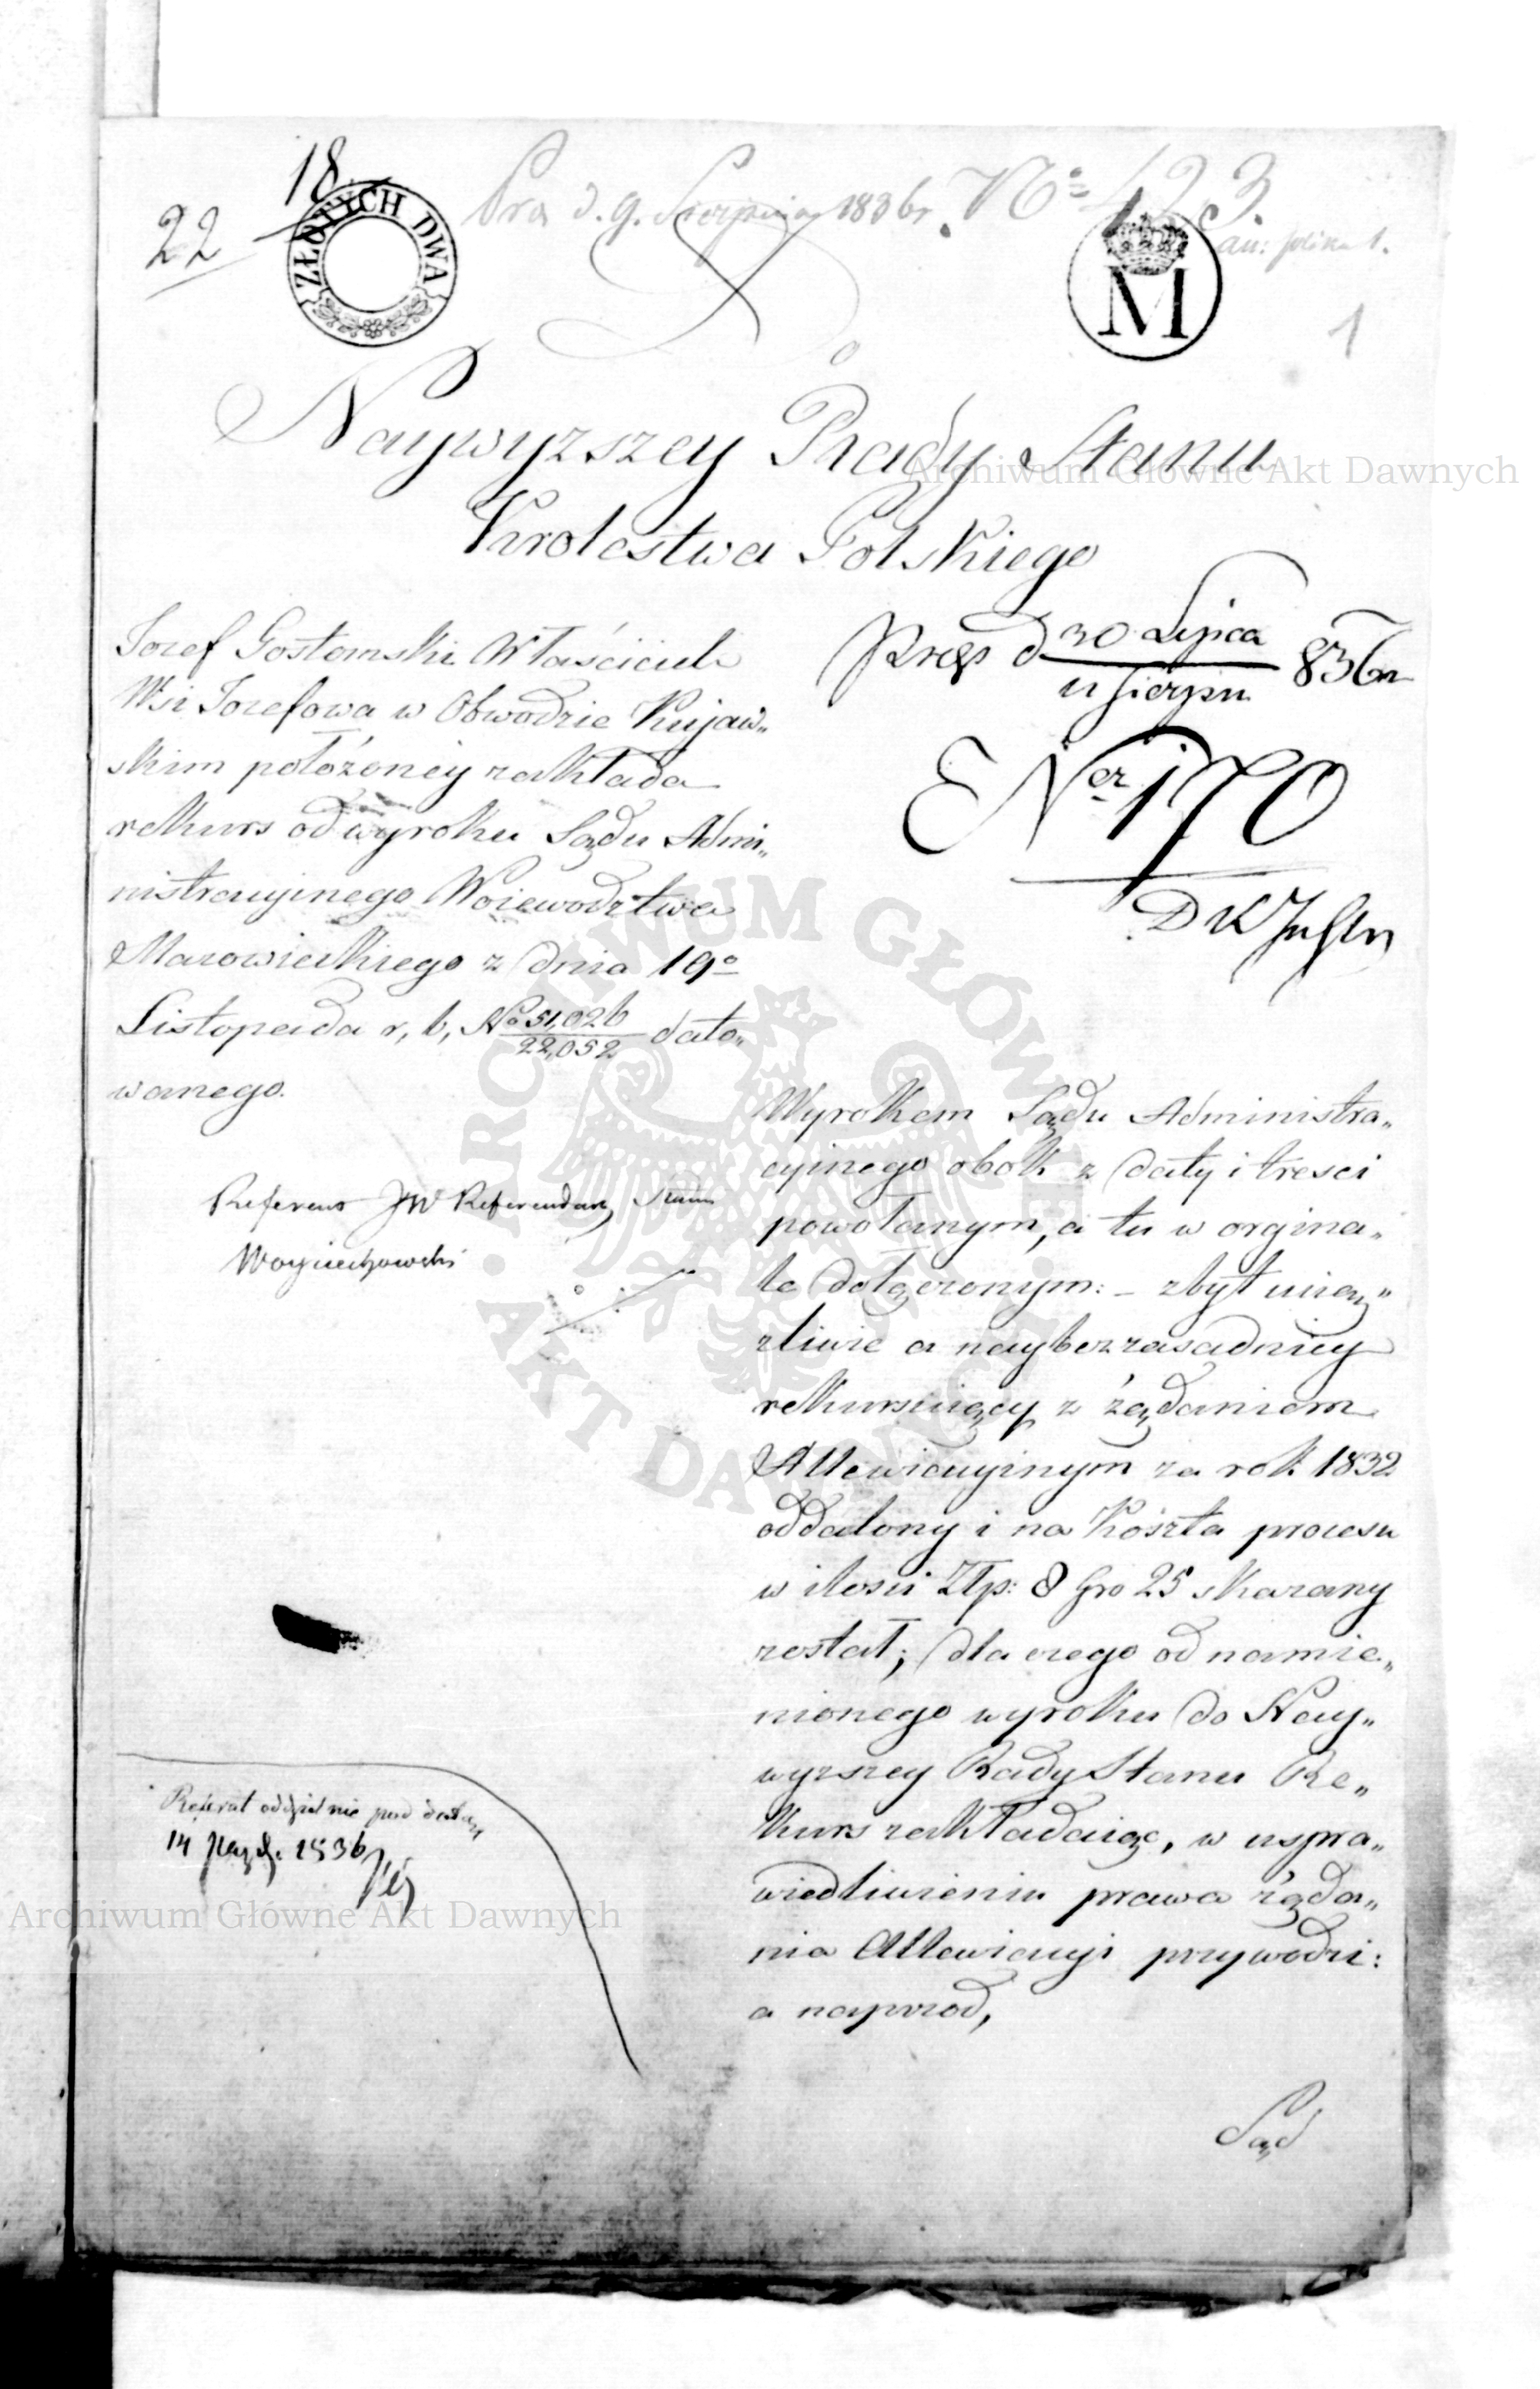 18.
22
ZŁOTYCH DWA
Pra d. 9. Sierpnia 1836r. No 423.
an: plika 1.
M
1
Naywyzszey Rady Stanu
Krolestwa Polskiego
Jozef Gostomski Właściciel
Wsi Jozefowa w Obwodzie Kujaw„
skim położoney zakłada
rekurs od wyroku Sądu Admi„
nistracyinego Woiewodztwa
Mazowieckiego z dnia 19o
Listopada r, b, No 51,026/22,052 dato„
wanego.
30 Lipca
11 Sierpn 836r
E Ner 170
Referent JW Referendarz Stanu
Woyciechowski
Wyrokem Sądu Administra„
cyinego obok z daty i tresci
powołanym, a tu w orgina„
le dołączonym: – zbyt uciąż„
zliwie a naybezzasadniey
rekursuiący z żądaniem
Allewiacyinym za rok 1832
oddalony i na Koszta processu
w ilości Złp: 8 gro 25 skazany
został; dla czego od namie„
nionego wyroku do Nay„
wyzszey Rady Stanu Re„
kurs zakładaiąc, w uspra„
wiedliwieniu prawa żąda„
nia Allewiacyi przywodzi:
a naprzod,
Referat oddzielnie pod datą
14 Paźdz. 1836
Sąd
ARCHIWUM GŁÓWNE
AKT DAWNYCH
Archiwum Główne Akt Dawnych
Archiwum Główne Akt Dawnych